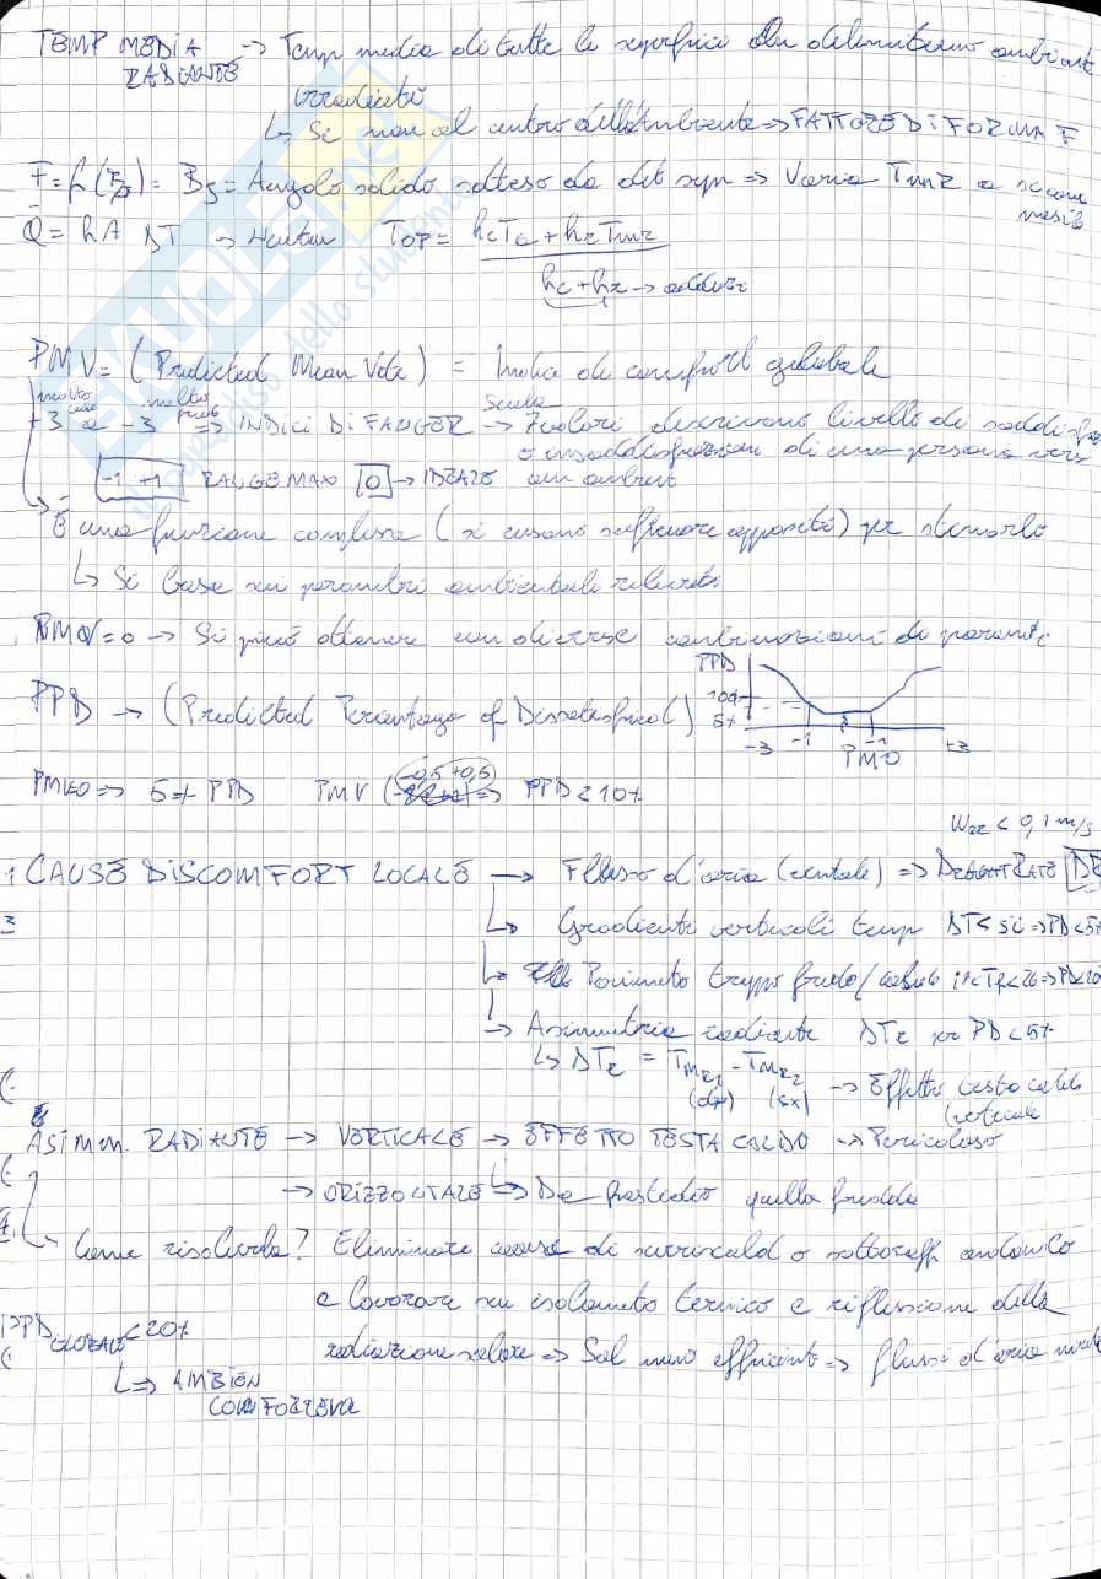 TEMP MEDIA → Temp media di tutte le superfici che delimitano ambiente
RADIANTE
irradiate
↳ Se non al centro dell'Ambiente ⇒ FATTORE DI FORMA F
= Angolo solido sotteso da det sup ⇒ Varia Tmr a seconda
Q = hA ΔT → Newton Top = hcTc + hrTmr
hc + hr → adduz
PMV = (Predicted Mean Vote) = Indice di comfort globale
molto caldo molto freddo scala
+3 a -3 ⇒ INDICI DI FANGER → 7 valori descrivono livello di soddisfaz
o insoddisfazione di una persona verso
-1 +1 RANGE MAX 0 → IDEALE un ambient
È una funzione complessa (si usano software appositi) per stimarlo
↳ Si basa sui parametri ambientali rilevati
PMV=0 → Si può ottenere con diverse combinazioni di parametri
PPD → (Predicted Percentage of Dissatisfied)
PPD
10%
5%
-3 -1 -1 +3
PMV=0 ⇒ 5% PPD PMV (-0,5 +0,5) ⇒ PPD < 10%
War < 0,1 m/s
CAUSE DISCOMFORT LOCALE → Flusso d'aria (ventole) ⇒ DRAUGHT RATE DR
↳ Gradienti verticali temp ΔT < 5 ⇒ PD < 5%
↳ Pavimento troppo freddo/caldo
→ Asimmetria radiante ΔTr per PD < 5%
↳ ΔTr = Tmr1 - Tmr2 → Effetto testa calda
(dx) (sx)
ASIMM. RADIANTE → VERTICALE → EFFETTO TESTA CALDO → Pericoloso
→ ORIZZONTALE ↳ Da fastidio quella fredda
↳ Come risolverla? Eliminare cause di surriscald o sottoraff
e lavorare su isolamento termico e riflessione della
PPD GLOBALE < 20% radiazione solare ⇒ Sol meno efficiente ⇒ flussi d'aria
↳⇒ AMBIEN
CONFOREVOL